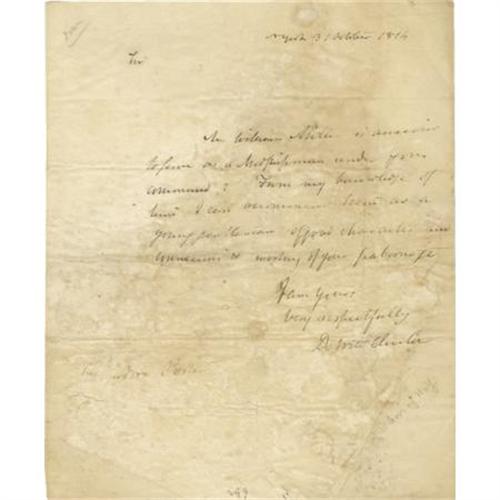 NYork 31 October 1814
Sir
Mr William is anxious
to serve as a Midshipman under your
command. From my knowledge of
him I can recommend him as a
young gentleman of good character and
connexions & worthy of your patronage
I am Yours
Very respectfully
DeWitt Clinton
249